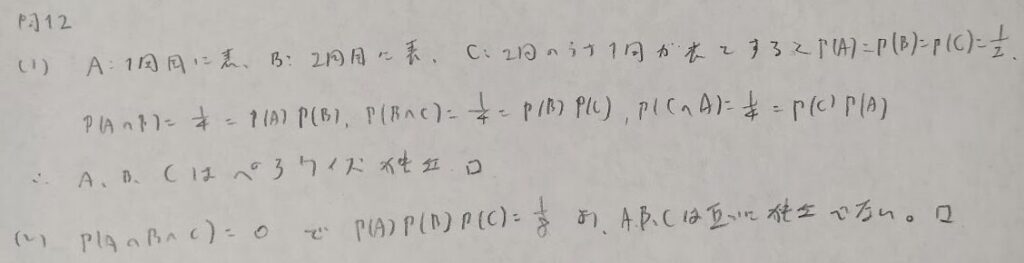 問12
(1) A:1回目に表、B:2回目に表、C:2回のうち1回が表とするとP(A)=P(B)=P(C)=1/2.
P(A∩B)=1/4=P(A)P(B), P(B∩C)=1/4=P(B)P(C), P(C∩A)=1/4=P(C)P(A)
∴ A、B、Cはペアワイズ独立 □
(2) P(A∩B∩C)=0 で P(A)P(B)P(C)=1/8 より、A.B.Cは互いに独立でない。□